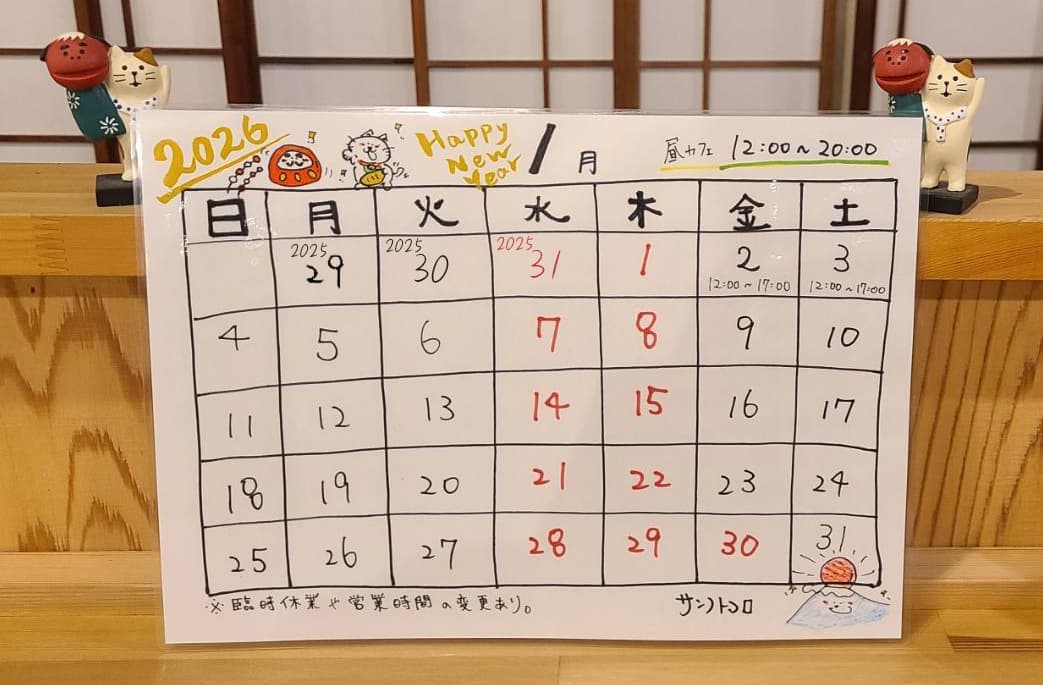 2026
Happy New Year
1月
昼カフェ 12:00～20:00
日 月 火 水 木 金 土
2025 29 2025 30 2025 31 1 2 12:00～17:00 3 12:00～17:00
4 5 6 7 8 9 10
11 12 13 14 15 16 17
18 19 20 21 22 23 24
25 26 27 28 29 30 31
※臨時休業や営業時間の変更あり。
サンノトコロ